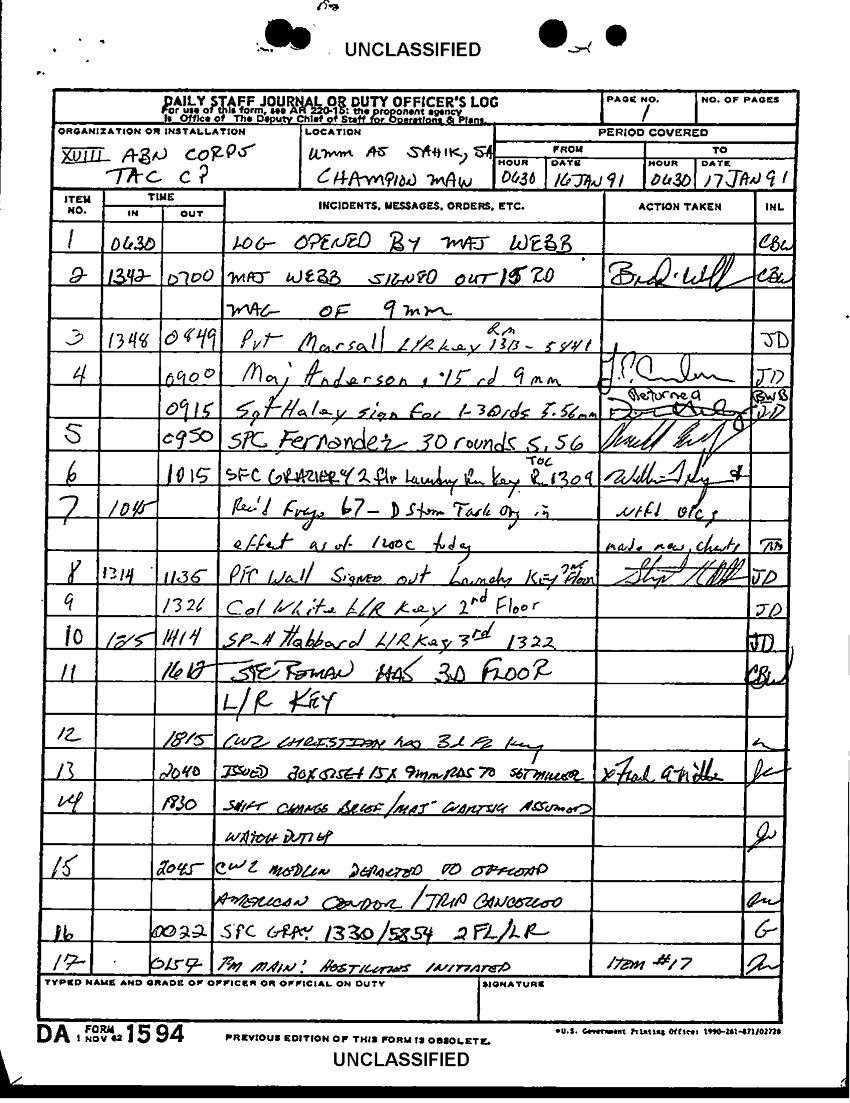 UNCLASSIFIED
DAILY STAFF JOURNAL OR DUTY OFFICER'S LOG
For use of this form, see AR 220-15; the proponent agency
is Office of The Deputy Chief of Staff for Operations & Plans.
PAGE NO.
1
NO. OF PAGES
ORGANIZATION OR INSTALLATION
XVIII ABN CORPS
TAC CP
LOCATION
UMM AS SAHIK, SA
CHAMPION MAIN
PERIOD COVERED
FROM TO
HOUR DATE HOUR DATE
0630 16 JAN 91 0630 17 JAN 91
ITEM NO. TIME IN OUT INCIDENTS, MESSAGES, ORDERS, ETC. ACTION TAKEN INL
1 0630 LOG OPENED BY MAJ WEBB CBW
2 1342 0700 MAJ WEBB SIGNED OUT 15 RD CBW
MAG OF 9mm
3 1348 0849 Pvt Marsall L/R key Rm 1313 - 5841 JD
4 0900 Maj Anderson, 15 rd 9mm JD
Returned BWB
0915 Sgt Haley sign for 1-30rds 5.56mm JD
5 0950 SPC Fernandez 30 rounds 5.56
6 1015 SFC GRAZIER 2 flr Laundry Rm Key TOC R 1309
7 1045 Rec'd Frago 67 - D Storm Task Org in
effect as of 1200C today made new charts
8 1314 1136 Pfc Wall Signed out Laundry Key 2nd Floor JD
9 1326 Col White L/R Key 2nd Floor JD
10 1414 SP-4 Habbard L/R Key 3rd 1322 JD
11 1612 ROMAN HAS 3D FLOOR CBW
L/R KEY
12 1815 CW2 CHRISTIAN has 3d FL key
13 2040 ISSUED 15 X 9mm RDS TO SGT MILLER
14 1830 SHIFT CHANGE BRIEF/MAJ ASSUMED
WATCH
15 2045 CW2 MODLIN DEPARTED TO OFFLOAD
AMERICAN CONDOR / TRIP CANCELLED
16 0022 SPC GRAY 1330/5854 2FL/LR G
17 0157 FM MAIN: HOSTILITIES INITIATED ITEM #17
TYPED NAME AND GRADE OF OFFICER OR OFFICIAL ON DUTY
SIGNATURE
DA FORM 1 NOV 62 1594
PREVIOUS EDITION OF THIS FORM IS OBSOLETE.
*U.S. Government Printing Office: 1990-261-871/02728
UNCLASSIFIED